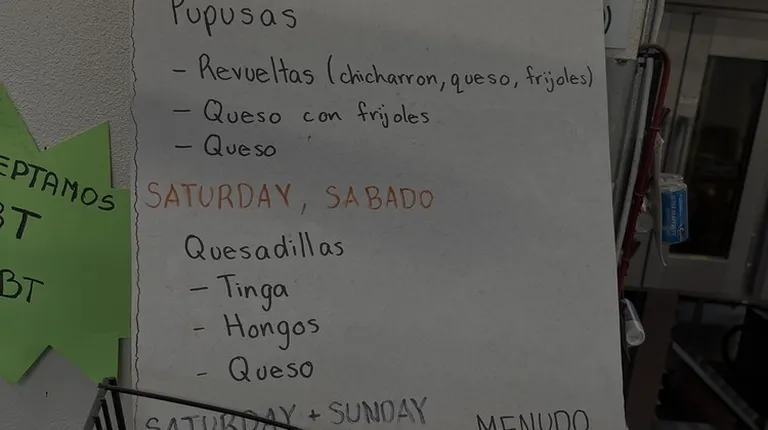 Pupusas
- Revueltas (chicharron, queso, frijoles)
- Queso con frijoles
- Queso
SATURDAY, SABADO
Quesadillas
- Tinga
- Hongos
- Queso
SATURDAY + SUNDAY MENUDO
EPTAMOS
BT
BT